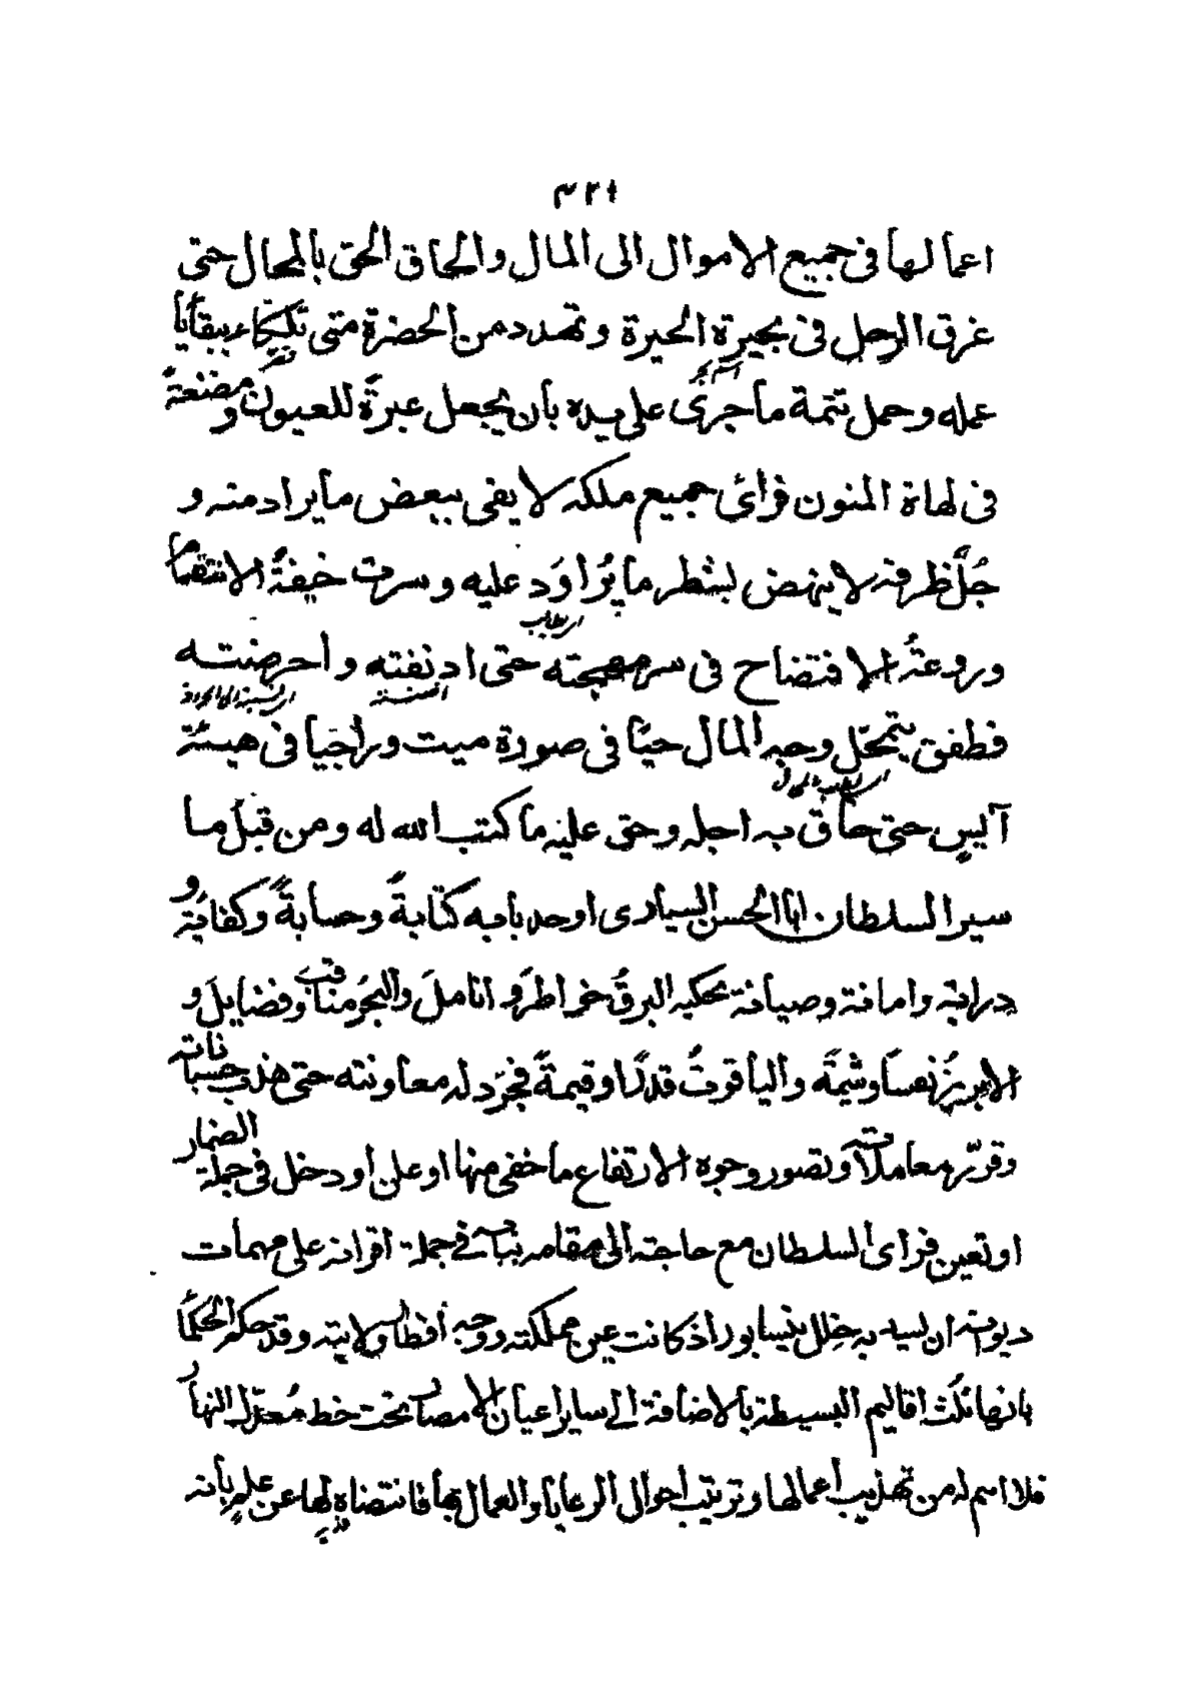 ٣٢١
اعمالها في جميع الاموال الى المال والحاق الحق بالمحال حتى
غرق الرجل في بحيرة الحيرة وتهدد من الحضرة متى تلكاء ببقايا
عمله وحمل تتمة ما جرى على يده بأن يجعل عبرةً للعيون ومضغةً
في لهاة المنون فرأى جميع ملكه لا يفى ببعض ما يراد منه و
جُلَّ ظرفه لا ينهض بشطر ما يُراوَد عليه وسرت خيفةُ الانتقام
وروعةُ الافتضاح في سر مهجته حتى ادنفته واحرضته
فطفق يتمحّل وجه المال حيًا في صورة ميت وراجيا في هيئة
آيسٍ حتى حاق به اجله وحق عليه ما كتب الله له ومن قبل ما
سير السلطان ابا الحسن السيارى اوحد بابه كتابةً وحسابةً وكفايةً و
درايةً وامانة وصيانة يحكيه البرقُ خواطرَ و اناملَ والبحرُ مناقب وفضايلَ و
الابريزُ نفسًا وشيمةً والياقوتُ قدرًا وقيمةً فجرّد له معاونته حتى هذب حسباناته
وقرّر معاملاته وتصور وجوه الارتفاع ما خفى منها او علن او دخل في جملة الضمار
او تعين فرأى السلطان مع حاجته الى مقامه ببابه في جملة اقرانه على مهمات
ديوانه ان يسد به خلل نيسابور اذ كانت عين مملكته ووجه أقطار ولايته وقد حكم الحكما
بانها ثلث اقاليم البسيطة بالاضافة الى ساير اعيان الامصار تحت خط معتدل النهار
فلا اسم له من تهذيب أعمالها وترتيب احوال الرعايا والعمال بها فانتضاه لها عن علمٍ بأنه